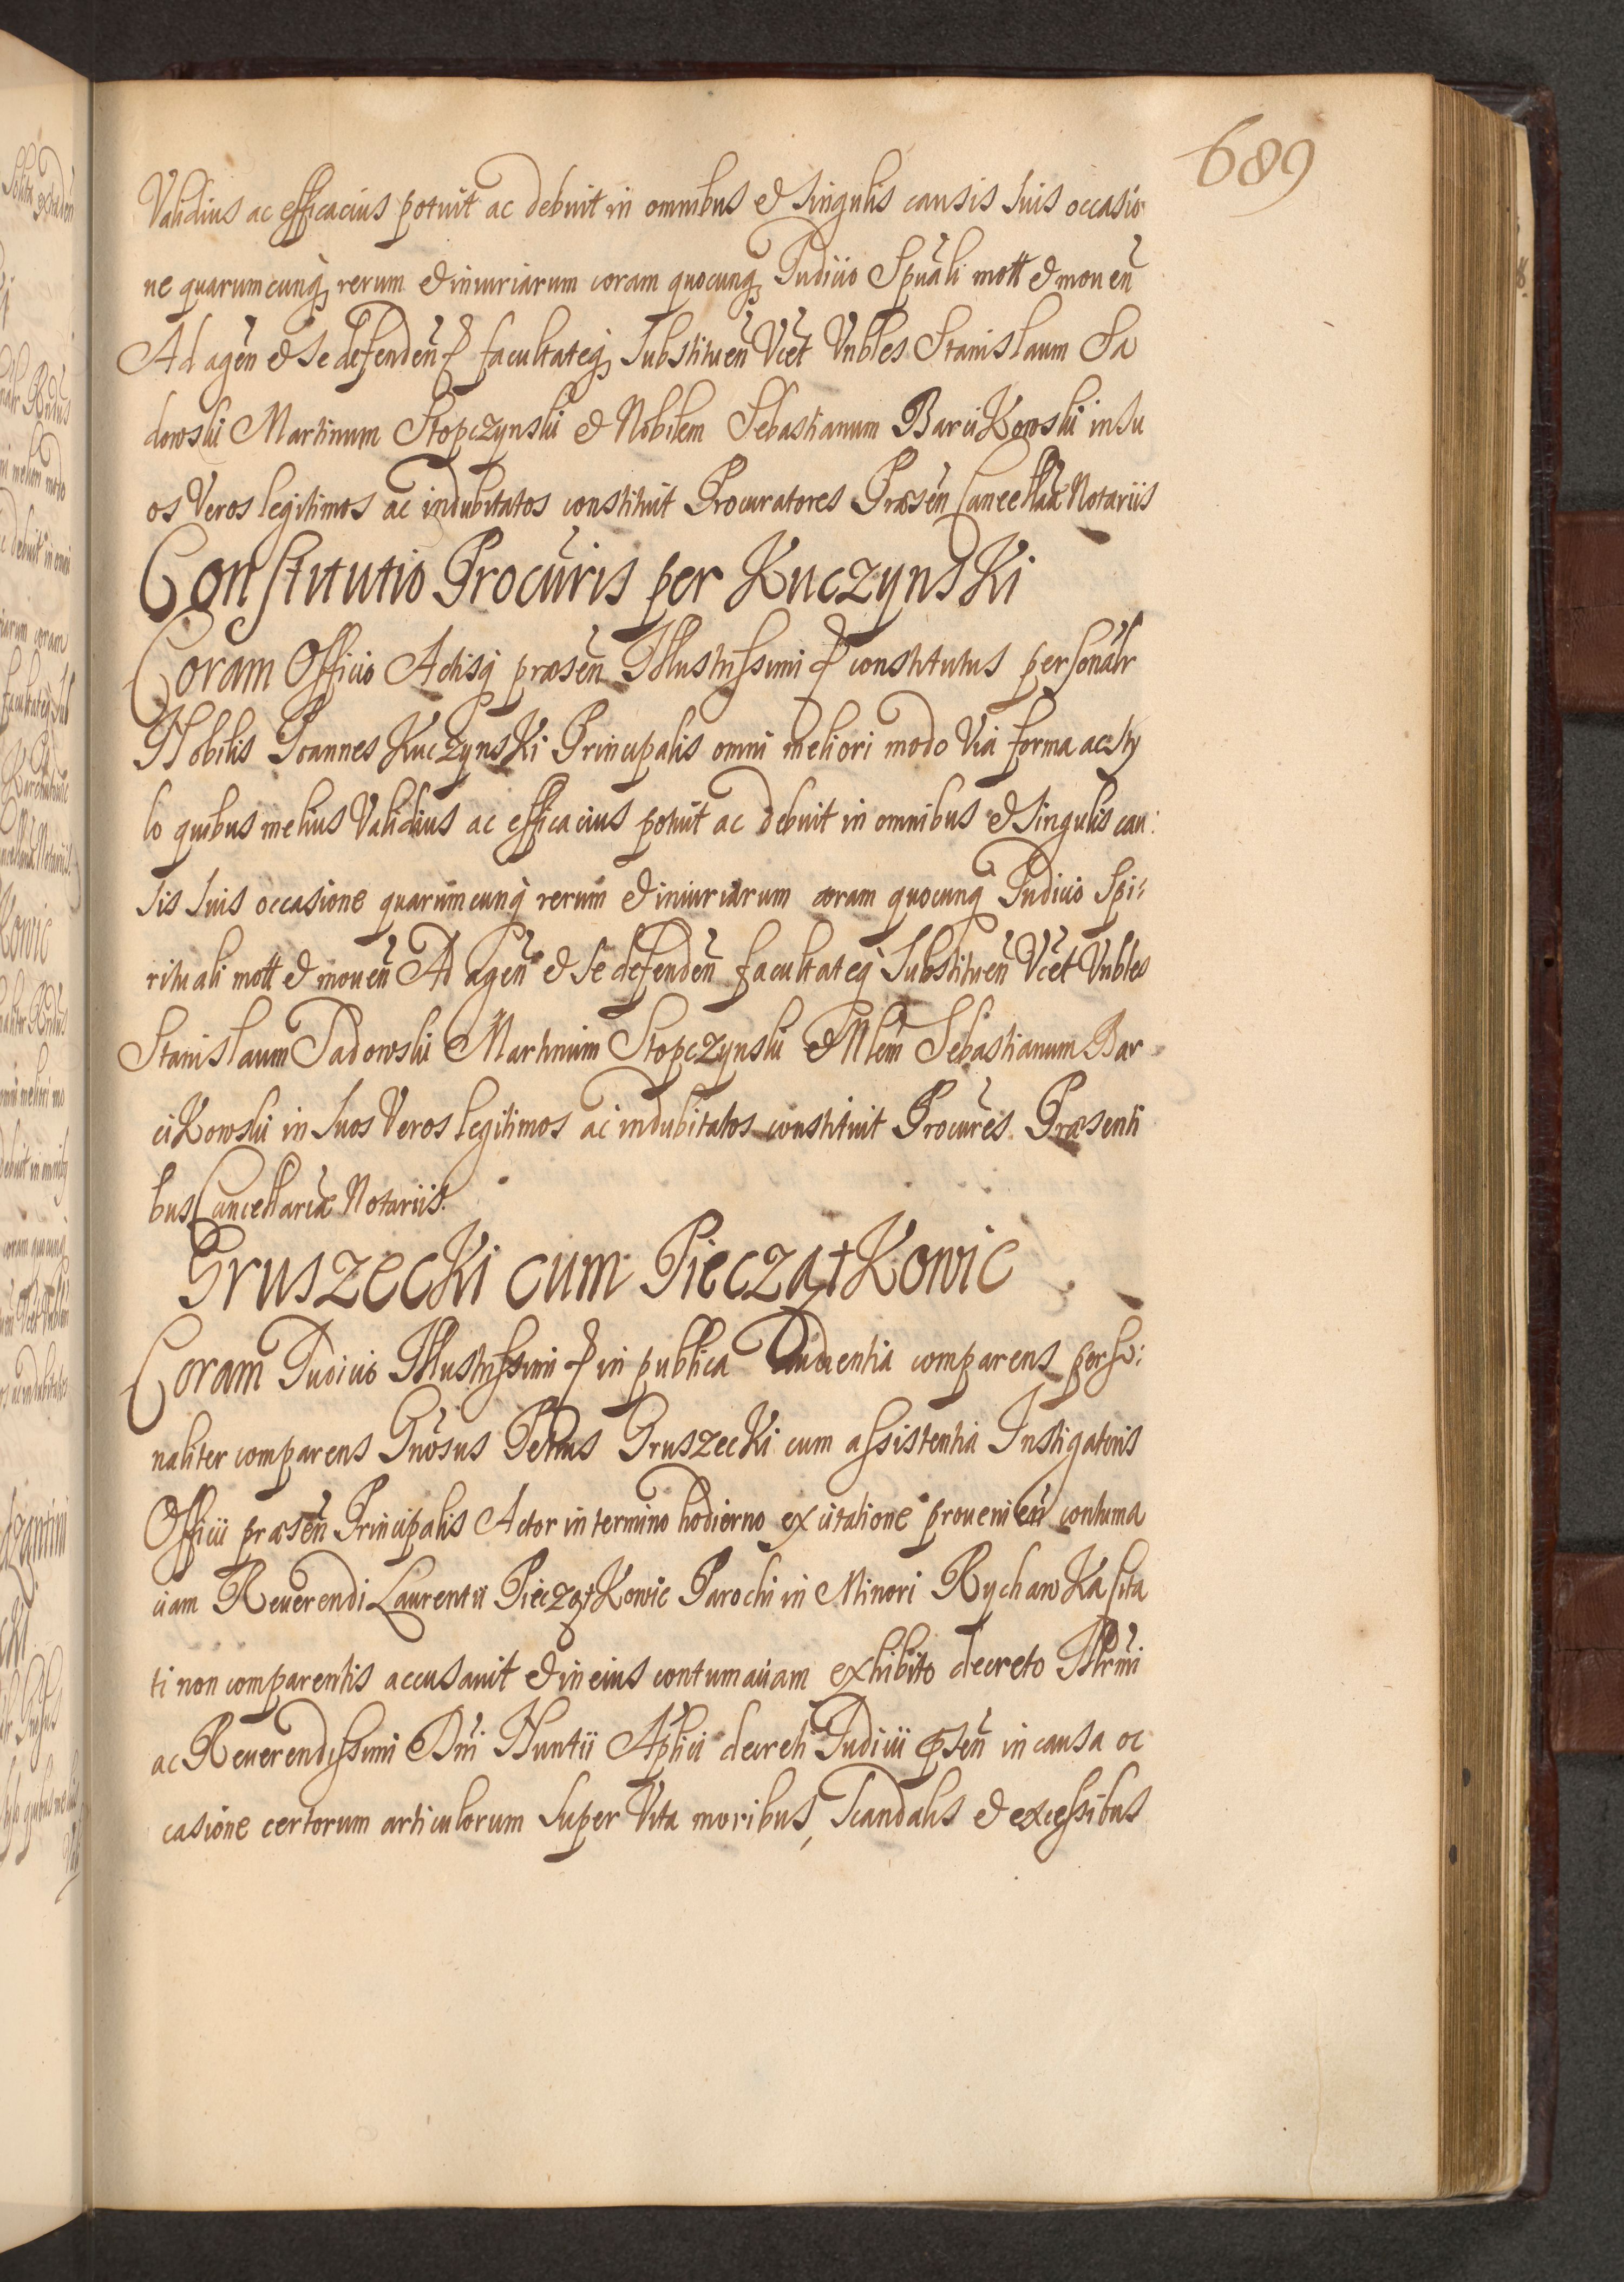 689
Validius ac efficacius potuit ac debuit in omnibus et singulis causis suis occasio
ne quarumcunq, rerum et iniuriarum coram quocunq, Judicio Spuali mott et mouen
Ad agen et se defenden facultateq, substituen Vcet Vnbles Stanislaum Sa
dowski Martinum Stopczynski et Nobilem Sebastianum BarciKowski in su
os Veros legitimos ac indubitatos constituit Procuratores Præsen Cancellaæ Notariis
Constitutio Procuris per KuczynsKi
Coram Officio Actisq præsen Illustrissimi constitutus personalr
Nobilis Joannes KuczynsKi Principalis omni meliori modo Via forma ac sty
lo quibus melius Validius ac efficacius potuit ac debuit in omnibus et singulis cau:
sis suis occasione quarumcunq rerum et iniuriarum coram quocunq Judicio Spi:
rituali mott et mouen Ad agen et se defenden facultateq substituen Vcet Vnbles
Stanislaum Sadowski Martinum Stopczynski et Nlem Sebastianum Bar
ciKowski in suos Veros legitimos ac indubitatos constituit Procures Præsenti
bus Cancellariæ Notariis.
GruszecKi cum PieczątKowic
Coram Judicio Illustrissimi in publica Audientia comparens perso:
naliter comparens Gnosus Petrus GruszecKi cum assistentia Instigatoris
Officii præsen Principalis Actor in termino hodierno ex citatione prouenien contuma
ciam Reuerendi Laurentii PieczątKowic Parochi in Minori RychawKa cita
ti non comparentis accusauit et in eius contumaciam exhibito decreto Illrmi
ac Reuerendissimi Dni Nuntii Aplici decreti Judicii psen in causa oc
casione certorum articulorum super Vita moribus, scandalis et excessibus